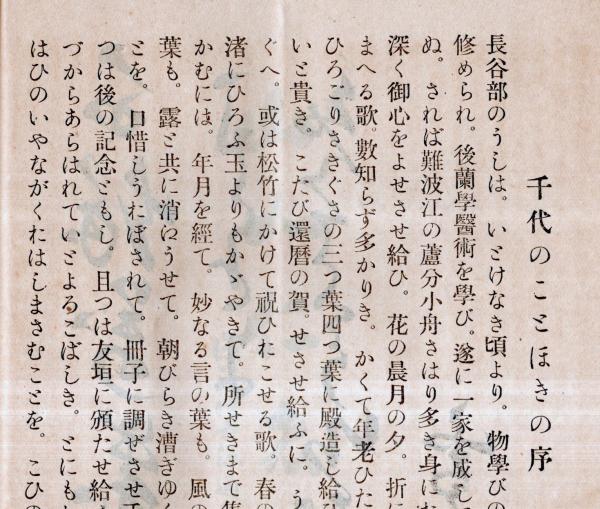 千代のことほきの序
長谷部のうしは。いとけなき頃より。物學びの
修められ。後蘭學醫術を學び。遂に一家を成し
ぬ。されば難波江の蘆分小舟さはり多き身に
深く御心をよせさせ給ひ。花の晨月の夕。折に
まへる歌。數知らず多かりき。かくて年老ひた
ひろごりさきぐさの三つ葉四つ葉に殿造し給ひ
いと貴き。こたび還曆の賀。せさせ給ふに。う
ぐへ。或は松竹にかけて祝ひおこせる歌。春の
渚にひろふ玉よりもかゞやきて。所せきまで集
かむには。年月を經て。妙なる言の葉も。風の
葉も。露と共に消うせて。朝びらき漕ぎゆく
とを。口惜しうおぼされて。冊子に調ぜさせ
つは後の記念ともし。且つは友垣に頒たせ給
づからあらはれていとよろこばしき。とにも
はひのいやながくおはしまさむことを。こひの